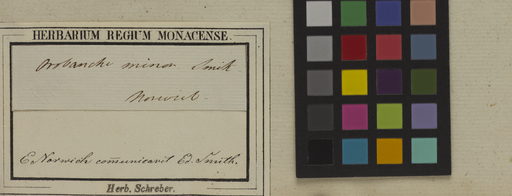 HERBARIUM REGIUM MONACENSE.
Orobanche minor Smith.
Norwich communicavit Ed. Smith.
Herb. Schreber.